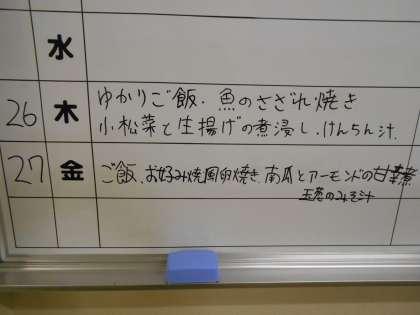 水
26 木 ゆかりご飯. 魚のさざれ焼き
小松菜と生揚げの煮浸し. けんちん汁.
27 金 ご飯. お好み焼風卵焼き. 南瓜とアーモンドの甘煮
玉葱のみそ汁